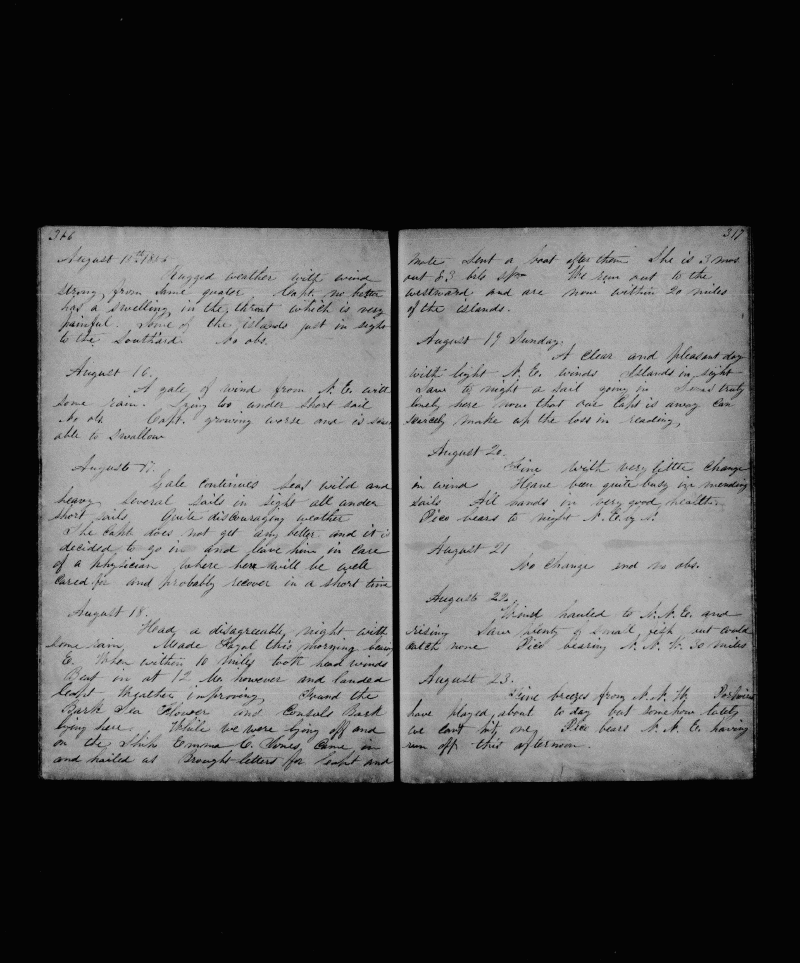 346
August 15th 18
Rugged weather with wind
strong from same quater Capt. no better
has a swelling in the throat which is very
painful. Some of the islands just in sight
to the Southard. No obs.
August 16.
A gale of wind from N. E. with
some rain. Lying too under short sail
No obs. Capt. growing worse and is
able to swallow
August 17.
Gale continues sea wild and
heavy several sails in sight all under
short sails. Quite discouraging weather
The capt. does not get any better and it is
decided to go in and leave him in care
of a physician where he will be well
cared for and probably recover in a short time
August 18.
Had a disagreeable night with
some rain, Meade Fayal this morning bearing
E. When within 10 miles took head winds
Beat in at 12 M. however and landed
Capt Weather improving. Found the
Bark Sea Flower and Consuls Bark
lying here. While we were lying off and
on the Ship Emma C. Jones, came in
and hailed us Brought letters for Capt and
317
mate Sent a boat after them She is 3 mos
out & 3 bbls Spm We run out to the
westward and are now within 20 miles
of the islands.
August 19 Sunday.
A clear and pleasant day
with light N. E. winds Islands in sight
Saw to night a sail going in Seems truly
lonely here now that our Capt is away Can
scarcely make up the loss in reading,
August 20.
Fine with very little change
in wind Have been quite busy in mending
sails All hands in very good health
Pico bears to night N. E. by N.
August 21
No change and no obs.
August 22.
Wind hauled to N. N. E. and
rising Saw plenty of small fish but could
catch none Pico bearing N. N. W. 30 miles
August 23.
Fine breezes from N. N. W. Porpoises
have played about to day but somehow lately
we cant hit one, Pico bears N. N. E. having
run off this afternoon.